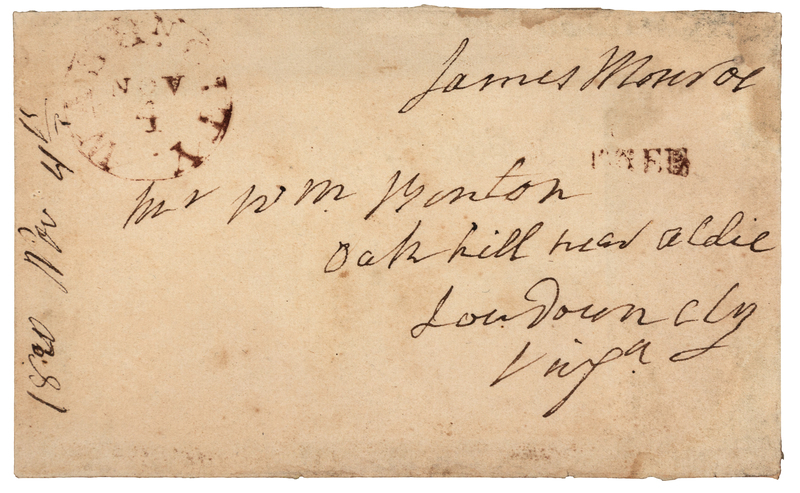 James Monroe
FREE
NOV
Mr Wm Benton
Oak hill near Aldie
Loudown cty
Virga
1820 Nov 4th